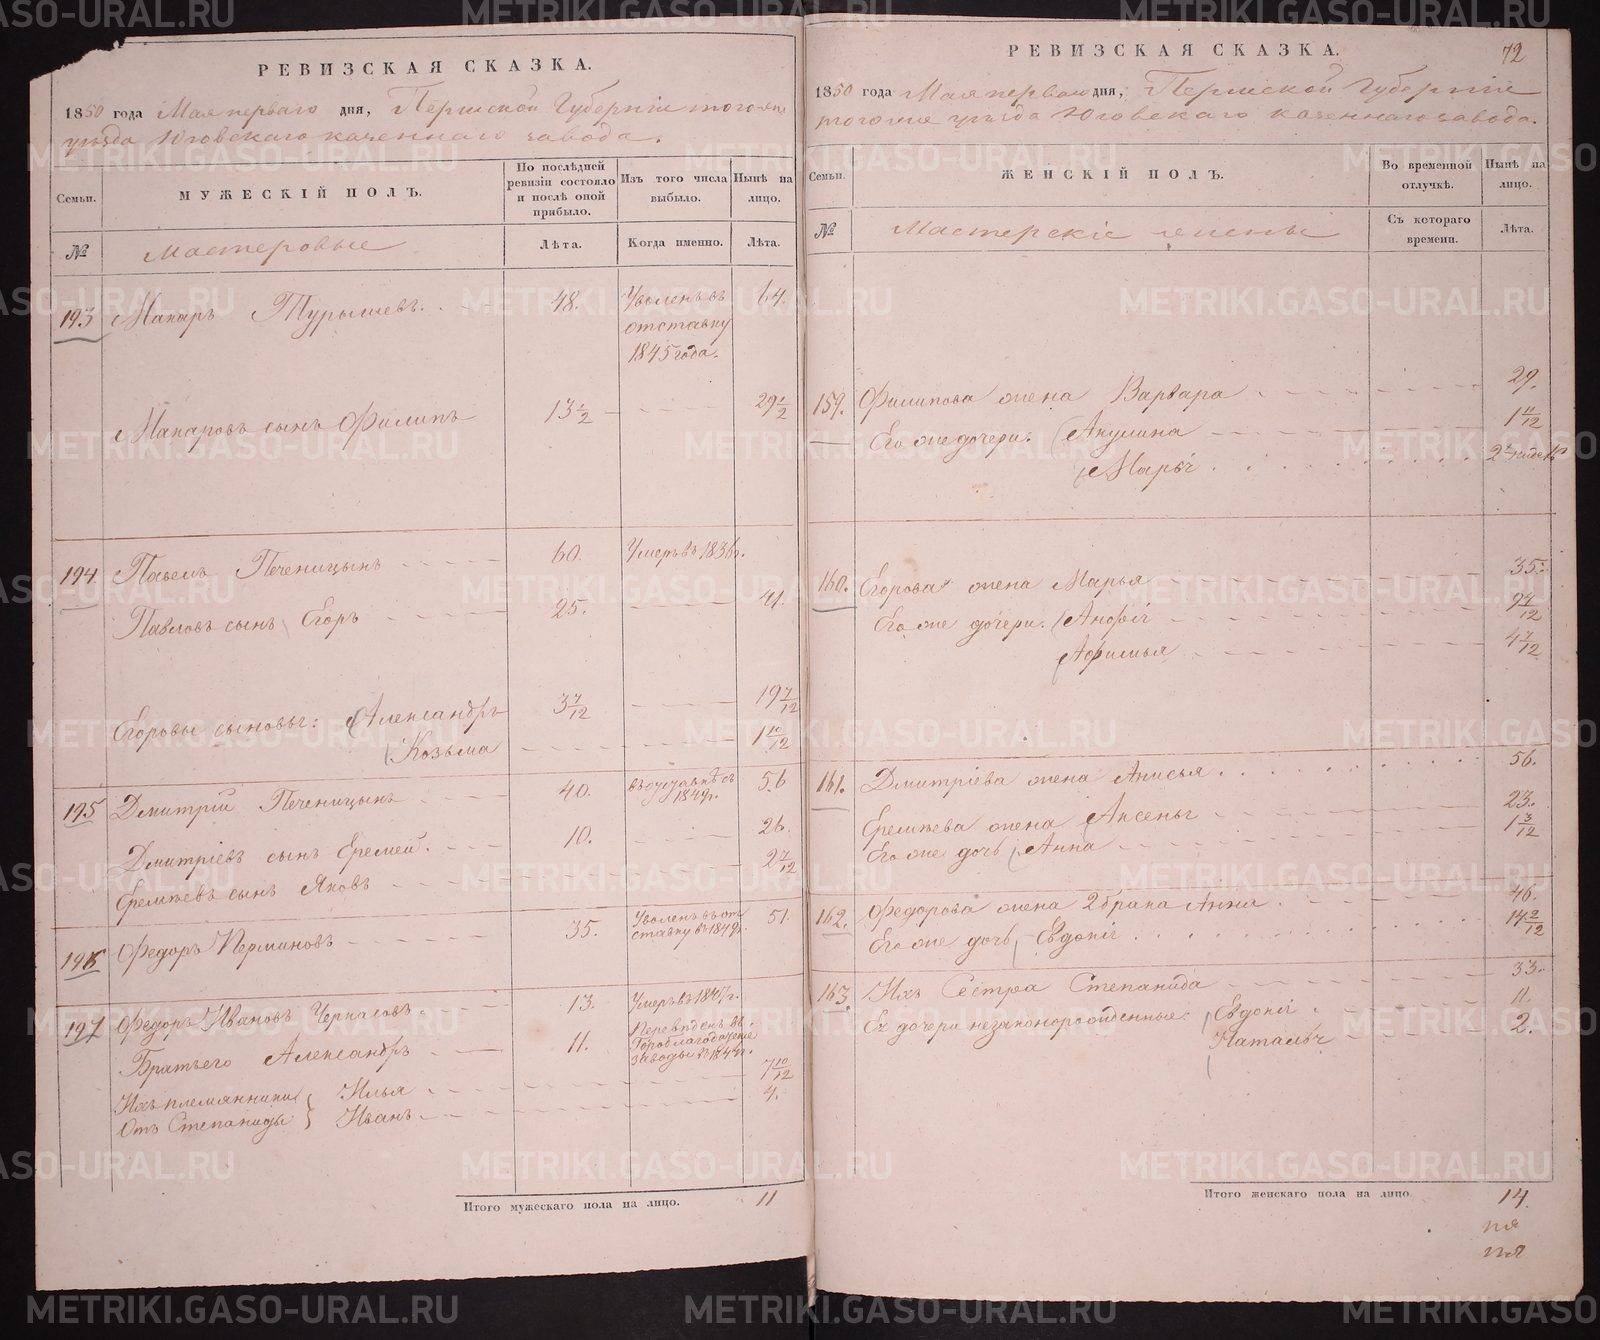 РЕВИЗСКАЯ СКАЗКА.
1850 года Мая перваго дня, Пермской Губерніи тогоже
уѣзда Юговскаго казеннаго завода.
Семьи.
МУЖЕСКІЙ ПОЛЪ.
По послѣдней ревизіи состояло и послѣ оной прибыло.
Изъ того числа выбыло.
Нынѣ на лицо.
№
Мастеровые
Лѣта.
Когда именно.
Лѣта.
193 Макаръ Турышевъ. 48. Уволенъ въ отставку 1845 года. 64.
Макаровъ сынъ Филипъ 13 1/2 29 1/2
194 Павелъ Печеницынъ 60. Умеръ въ 1836 г.
Павловъ сынъ Егоръ 25. 41.
Егоровы сыновья: Александръ 3 7/12 19 7/12
Козьма 1 10/12
195 Дмитрій Печеницынъ 40. 1849 г. 56
Дмитріевъ сынъ Еремей. 10. 26.
Еремѣевъ сынъ Яковъ 2 7/12
196 Федоръ Перминовъ 35. Уволенъ въ отставку въ 1849 г. 51.
197 Федоръ Ивановъ 13. Умеръ въ 1847 г.
Братъ его Александръ 11. Переведенъ въ Гороблагодатскіе заводы въ 1844 г.
Ихъ племянники Илья 7 10/12
Отъ Степаниды Иванъ 4.
Итого мужескаго пола на лицо. 11
РЕВИЗСКАЯ СКАЗКА. 72
1850 года Мая перваго дня, Пермской Губерніи
тогоже уѣзда Юговскаго казеннаго завода.
Семьи.
ЖЕНСКІЙ ПОЛЪ.
Во временной отлучкѣ.
Нынѣ на лицо.
№
Мастерскіе жены
Съ котораго времени.
Лѣта.
159. Филипова жена Варвара 29.
Его же дочери: Акулина 1 11/12
Марья 2 недѣль
160. Егорова жена Марья 35.
Его же дочери. Анфія 9 4/12
Афимья 4 7/12
161. Дмитріева жена Анисья 56.
Еремѣева жена Аксенья 23.
Его же дочь Анна 1 3/12
162. Федорова жена 2 брака Анна 46.
Его же дочь Евдокія 14 2/12
163. Ихъ Сестра Степанида 33.
Ея дочери незаконорожденные: Евдокія 11.
Наталья 2.
Итого женскаго пола на лицо. 14
METRIKI.GASO-URAL.RU